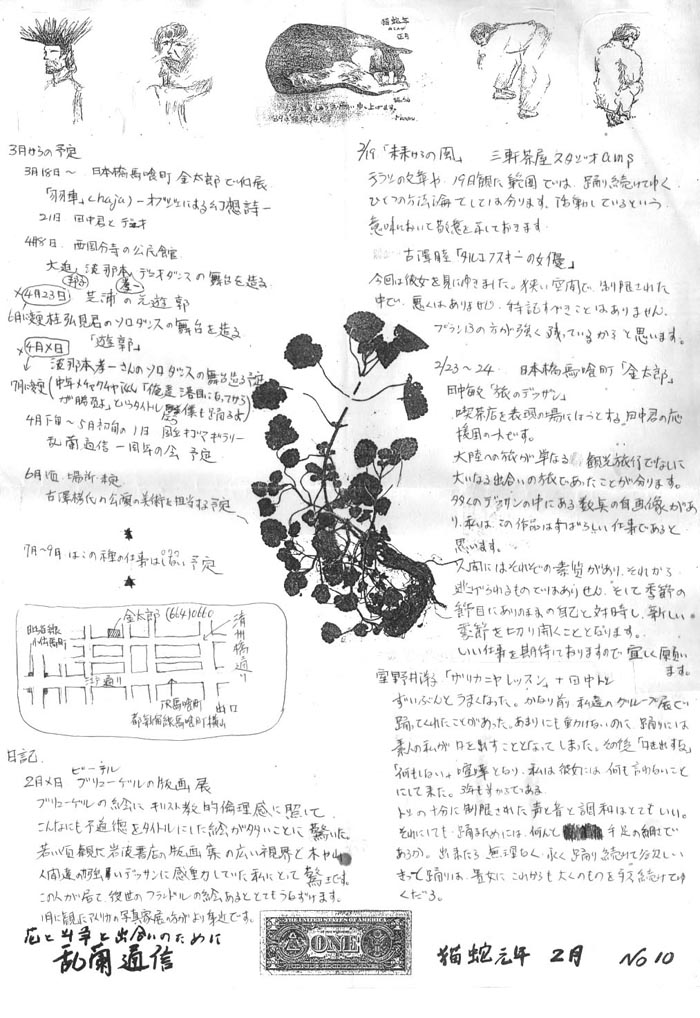 猫蛇年
正月
3月からの予定
3月18日〜 日本橋馬喰町 金太郎で個展
「羽車」<haja) -オブジェによる幻想詩-
21日 田中君と デュオ
4月8日. 西国分寺の公民館
大迫 波那本 デュオダンスの舞台を造る
×4月23日 芝浦の元遊廓
6月に変更 桂弘見君のソロダンスの舞台を造る
「遊郭」
×4月メ日
波那本孝一さんのソロダンスの舞台造る予定
7月に変更
が勝負よ」というタイトル 僕も踊るよ
4月下旬〜5月初旬の1日 国立 ギャラリー
乱蘭通信 一周年の会 予定
6月頃. 場所 未定
古澤 氏の公演の美術を担当する予定
★
7月〜9月はこの種の仕事はしない予定
★
金太郎 (664)0660
清州橋通り
江戸通り
JR馬喰町
都営新宿線馬喰町横山
出口
日記.
2月メ日 ブリューゲルの版画展
ブリューゲルの絵に キリスト教的倫理感に照して
こんなにも不道徳をタイトルにした絵が多いことに驚いた.
若い頃観た岩波書店の版画集の広い視界と
人間達の力強いデッサンに感動していた私にとって驚きです。
この人が居て、後世のフランドルの絵あるととてもうなずけます。
1月に観たアメリカの写真家展の方がより身近です。
花と 斗争と出合いのために
乱蘭通信
2/19 「未来からの風」 三軒茶屋スタジオamp
意味において敬意を示しておきます.
古澤 「タルコフスキーの女優」
今回は彼女を見にゆきました. 狭い空間で、制限された
中で、悪くはありません. 特記すべきことはありません.
プラン13の方が強く残っているからと思います.
2/23〜24. 日本橋馬喰町「金太郎」
田中敏 「旅のデッサン」
喫茶店を表現の場にしようとする 田中君の応
援図の一つです。
大陸への旅が単なる 観光旅行でなしに
大いなる出合いの旅であったことが分ります.
多くのデッサンの中にある数点の自画像があ
り、私は、この作品はすばらしい仕事であると
思います.
人間にはそれぞれの素質があり、それから
逃げられるものではありません. そして季節の
節目にありのままの自己と対峙し、新しい
季節を切り開くこととなります.
いい仕事を期待しておりますので 宜しく願い
ます。
室野井洋子 「ザリカニヤ レッスン」 + 田中トシ
ずいぶんとうまくなった. かなり前 私達のグループ展で
踊ってくれたことがあった. あまりにも動かないのに、踊りには
素人の私が口を出すこととなってしまった. その後「口を出すな」
「何もしない」と喧嘩となり、私は彼女には 何も言わないこと
にして来た. 3年も前からである
トシの十分に制限された声と音と調和はとてもいい.
それにしても、踊るためには、何んと 手足の細いで
あるか. 出来たら 無理なく、永く 踊り続けて下さい
きっと踊りは、貴女に これからも 多くのものを 与え続けてゆ
くだろう.
THE UNITED STATES OF AMERICA
ONE
猫蛇元年 2月 No 10